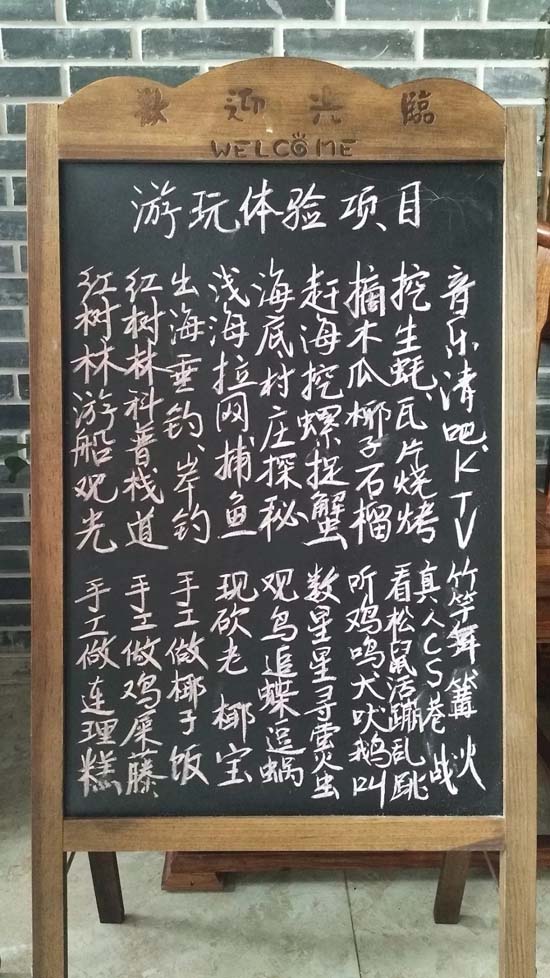 歡迎光臨
WELCOME
游玩体验项目
红树林游船观光
红树林科普栈道
出海垂钓、岸钓
浅海拉网捕鱼
海底村庄探秘
赶海挖螺捉蟹
摘木瓜椰子石榴
挖生蚝、瓦片烧烤
音乐清吧、KTV
手工做连理糕
手工做鸡屎藤
手工做椰子饭
现砍老椰宝
观鸟追蝶逗蜗
数星星寻萤虫
听鸡鸣犬吠鹅叫
看松鼠活蹦乱跳
真人CS巷战
竹竿舞篝火